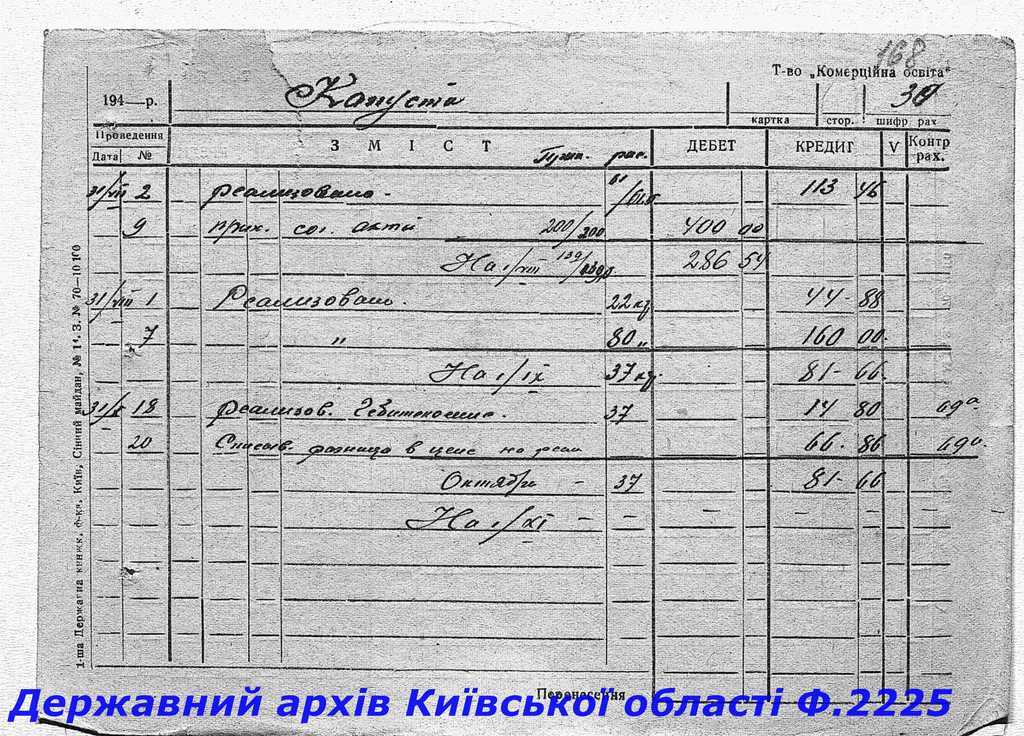 168
Т-во „Комерційна освіта"
194 — р. Капуста 30
картка стор. шифр рах
Проведення
Дата № ЗМІСТ рас. ДЕБЕТ КРЕДИТ V Контр рах.
31/VII 2 реализовано. 113 46
9 прих. сог. акта 200/200 400 00
На 1/VIII 286 54
31/VIII 1 Реализовано. 22 кг 44 - 88
7 " 80 „ 160 00
На 1/IX 37 кг. 81 - 66
31/X 18 реализов. 37 14 80 69а
20 Списыв. разница в цене на реал 66 - 86 69а
Октябрь - 37 81 - 66
На 1/XI - - - - - -
Перенесення
1-ша Державна книжк. ф-ка, Київ, Сінний майдан, № 14. З. № 70—10 100
Державний архів Київської області Ф.2225